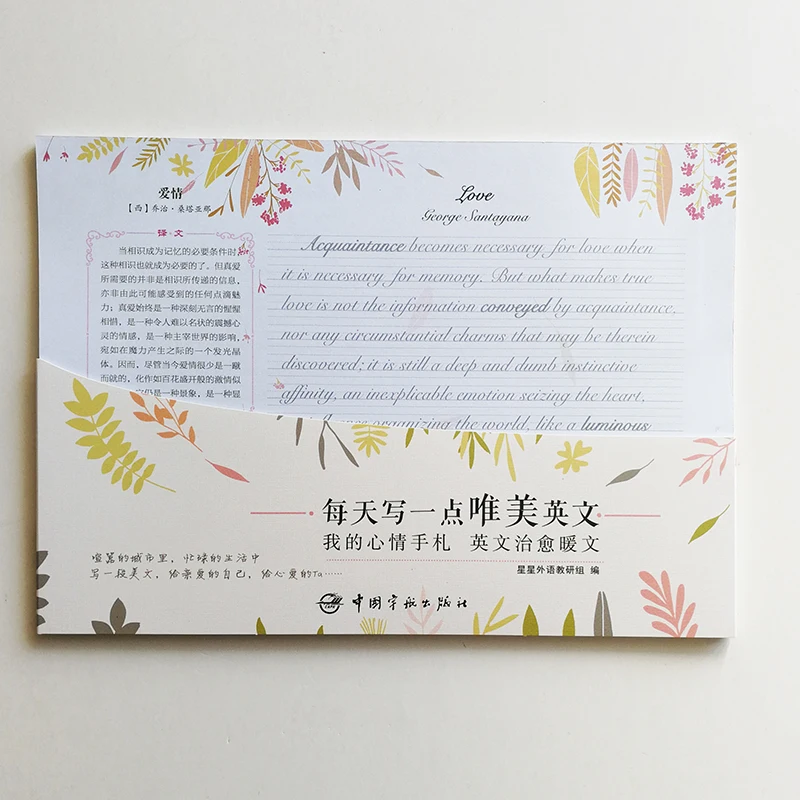 爱情
【西】乔治·桑塔亚那
译文
当相识成为记忆的必要条件时,
这种相识也就成为必要的了。但真爱
所需要的并非是相识所传递的信息,
亦非由此可能感受到的任何点滴魅
力;真爱始终是一种深刻无言的惺惺
相惜,是一种令人难以名状的震撼心
灵的情感,是一种主宰世界的影响,
宛如在魔力产生之际的一个发光晶
体。因而,尽管当今爱情很少是一蹴
而就的,化作如百花盛开般的激情似
仍是一种景象,是一种显
Love
George Santayana
Acquaintance becomes necessary for love when
it is necessary for memory. But what makes true
love is not the information conveyed by acquaintance,
nor any circumstantial charms that may be therein
discovered; it is still a deep and dumb instinctive
affinity, an inexplicable emotion seizing the heart,
organizing the world, like a luminous
每天写一点唯美英文
我的心情手札 英文治愈暖文
星星外语教研组 编
喧嚣的城市里,忙碌的生活中
写一段美文,给亲爱的自己,给心爱的Ta……
中国宇航出版社